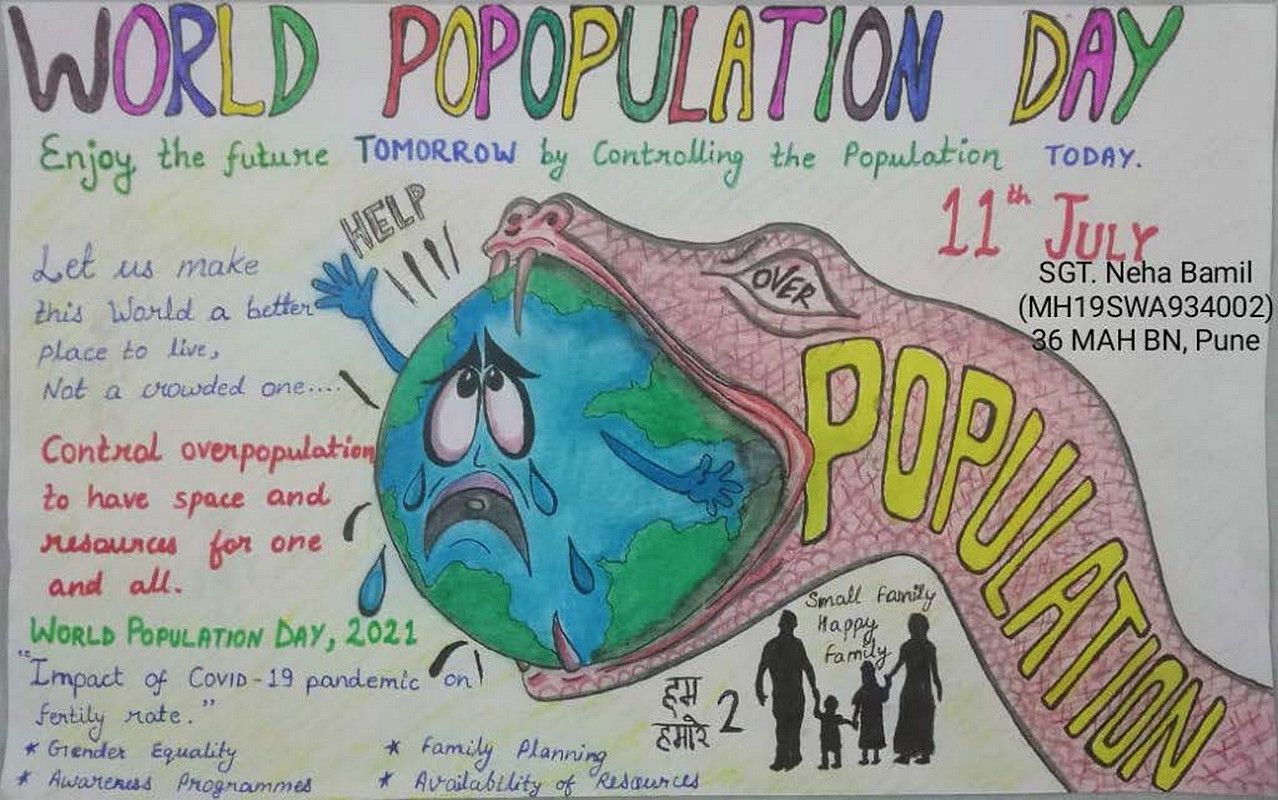 WORLD POPOPULATION DAY
Enjoy the future TOMORROW by Controlling the Population TODAY.
11th JULY
SGT. Neha Bamil
(MH19SWA934002)
36 MAH BN, Pune
HELP
Let us make
this World a better
place to live,
Not a crowded one....
OVER
POPULATION
Control overpopulation
to have space and
resources for one
and all.
WORLD POPULATION DAY, 2021
"Impact of COVID-19 pandemic on
fertily rate."
* Gender Equality
* Awareness Programmes
* Family Planning
* Availability of Resources
Small Family
Happy
family
हम
हमारे 2